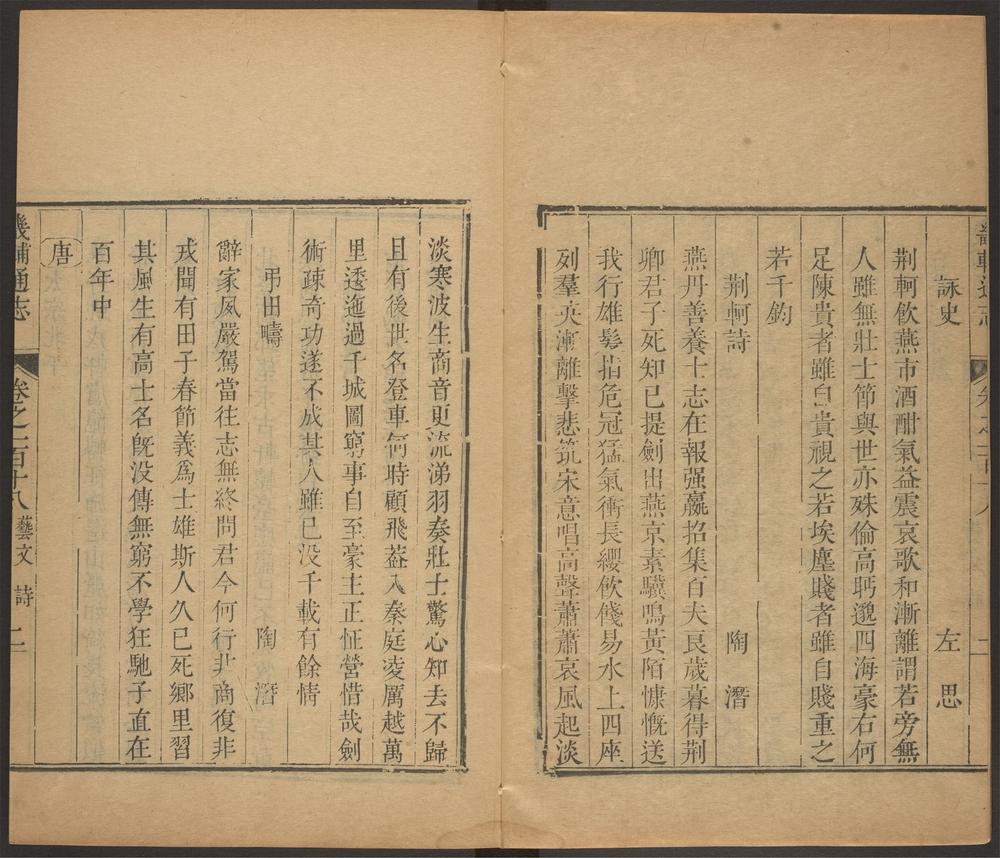 詠史 左思
荆軻飲燕市酒酣氣益震哀歌和漸離謂若旁無
人雖無壯士節與世亦殊倫高眄邈四海豪右何
足陳貴者雖自貴視之若埃塵賤者雖自賤重之
若千鈞
荆軻詩 陶潛
燕丹善養士志在報强嬴招集百夫良歲暮得荆
卿君子死知已提劍出燕京素驥鳴黃陌慷慨送
我行雄髮指危冠猛氣衝長纓飲餞易水上四座
列羣英漸離擊悲筑宋意唱高聲蕭蕭哀風起淡
淡寒波生商音更流涕羽奏壯士驚心知去不歸
且有後世名登車何時顧飛葢入秦庭凌厲越萬
里逶迤過千城圖窮事自至豪主正怔營惜哉劍
術疎奇功遂不成其人雖已没千載有餘情
弔田疇 陶潛
辭家夙嚴駕當往志無終問君今何行非商復非
戎聞有田子春節義爲士雄斯人久已死鄉里習
其風生有高士名旣没傳無窮不學狂馳子直在
百年中
唐
畿輔通志 卷之一百十八 藝文 詩 二